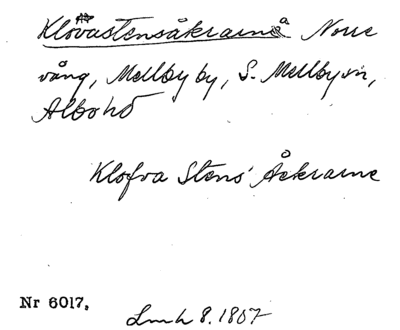 Klövastensåkrarne Norre
vång, Mellby by, S. Mellby sn,
Albo hd
Klofva Stens Åkrarne
Nr 6017.
Lmh 8. 1807